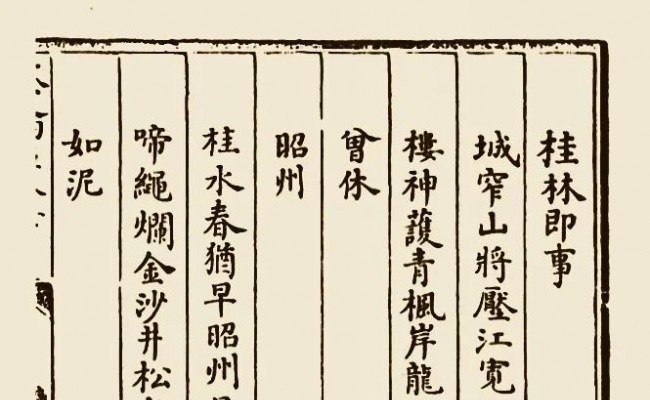 桂林即事
城窄山將壓江寬
樓神護青楓岸龍
曾休
昭州
桂水春猶早昭州
啼繩爛金沙井松
如泥